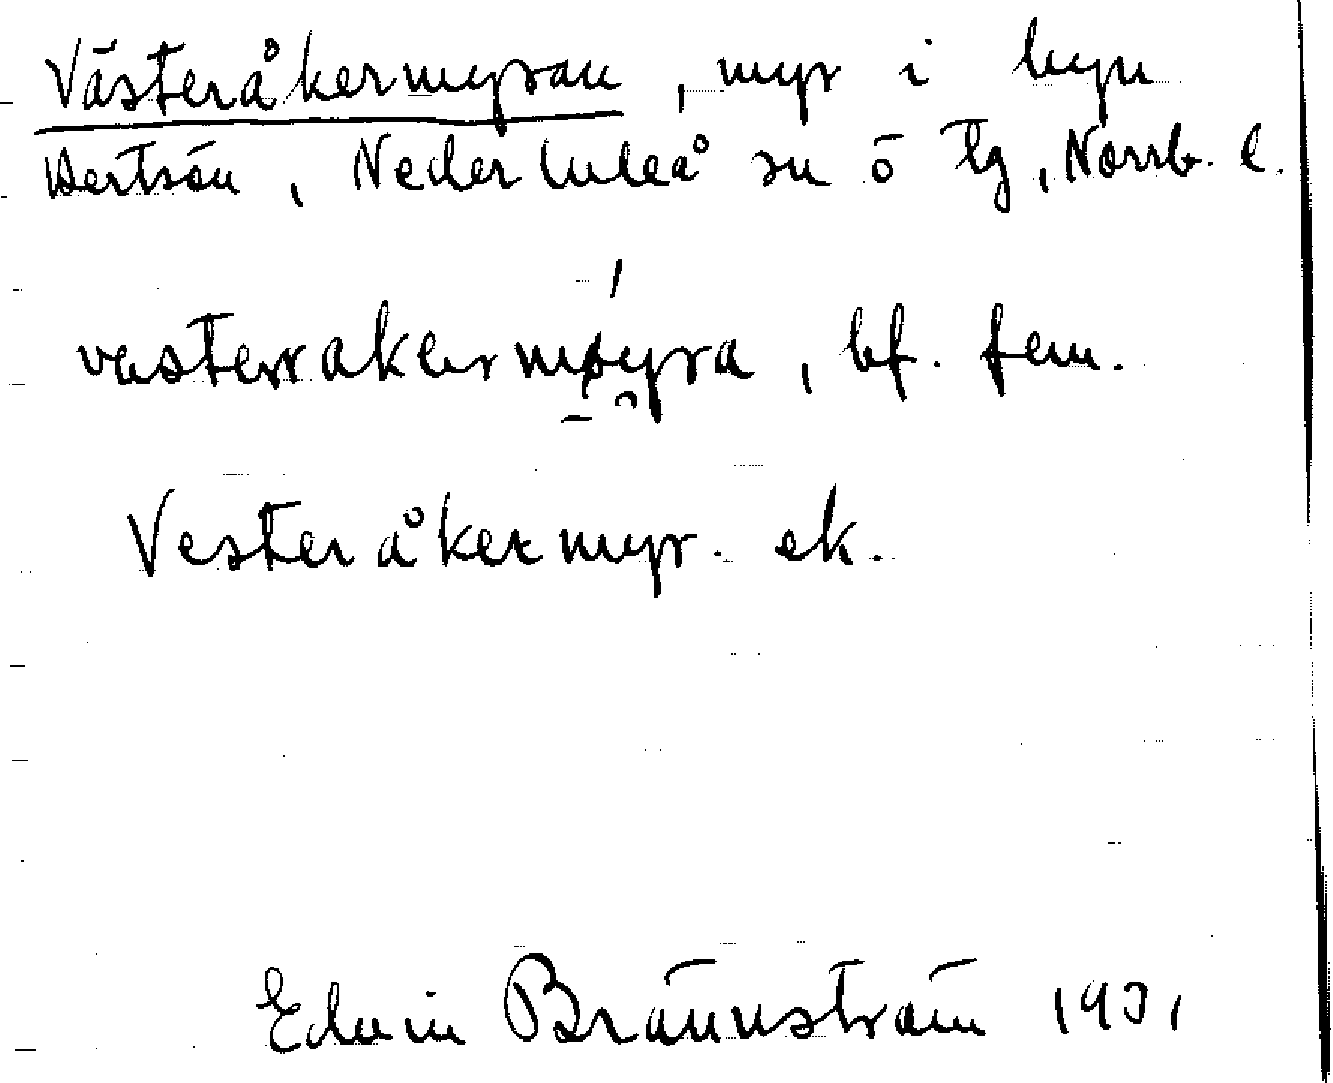 Västeråkermyran, myr i byn
Hertsön, Nederluleå sn ö tg, Norrb. l.
vesterrakermøyra, bf. fem.
Vesteråkermyr. ek.
Edwin Brännström 1931